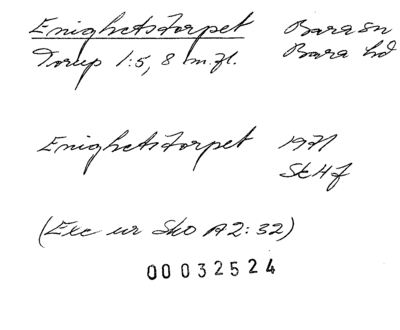 Enighetstorpet Bara sn
Torup 1:5, 8 m.fl. Bara hd
Enighetstorpet 1971
SkHf
(Exc ur Sko A2:32)
00032524